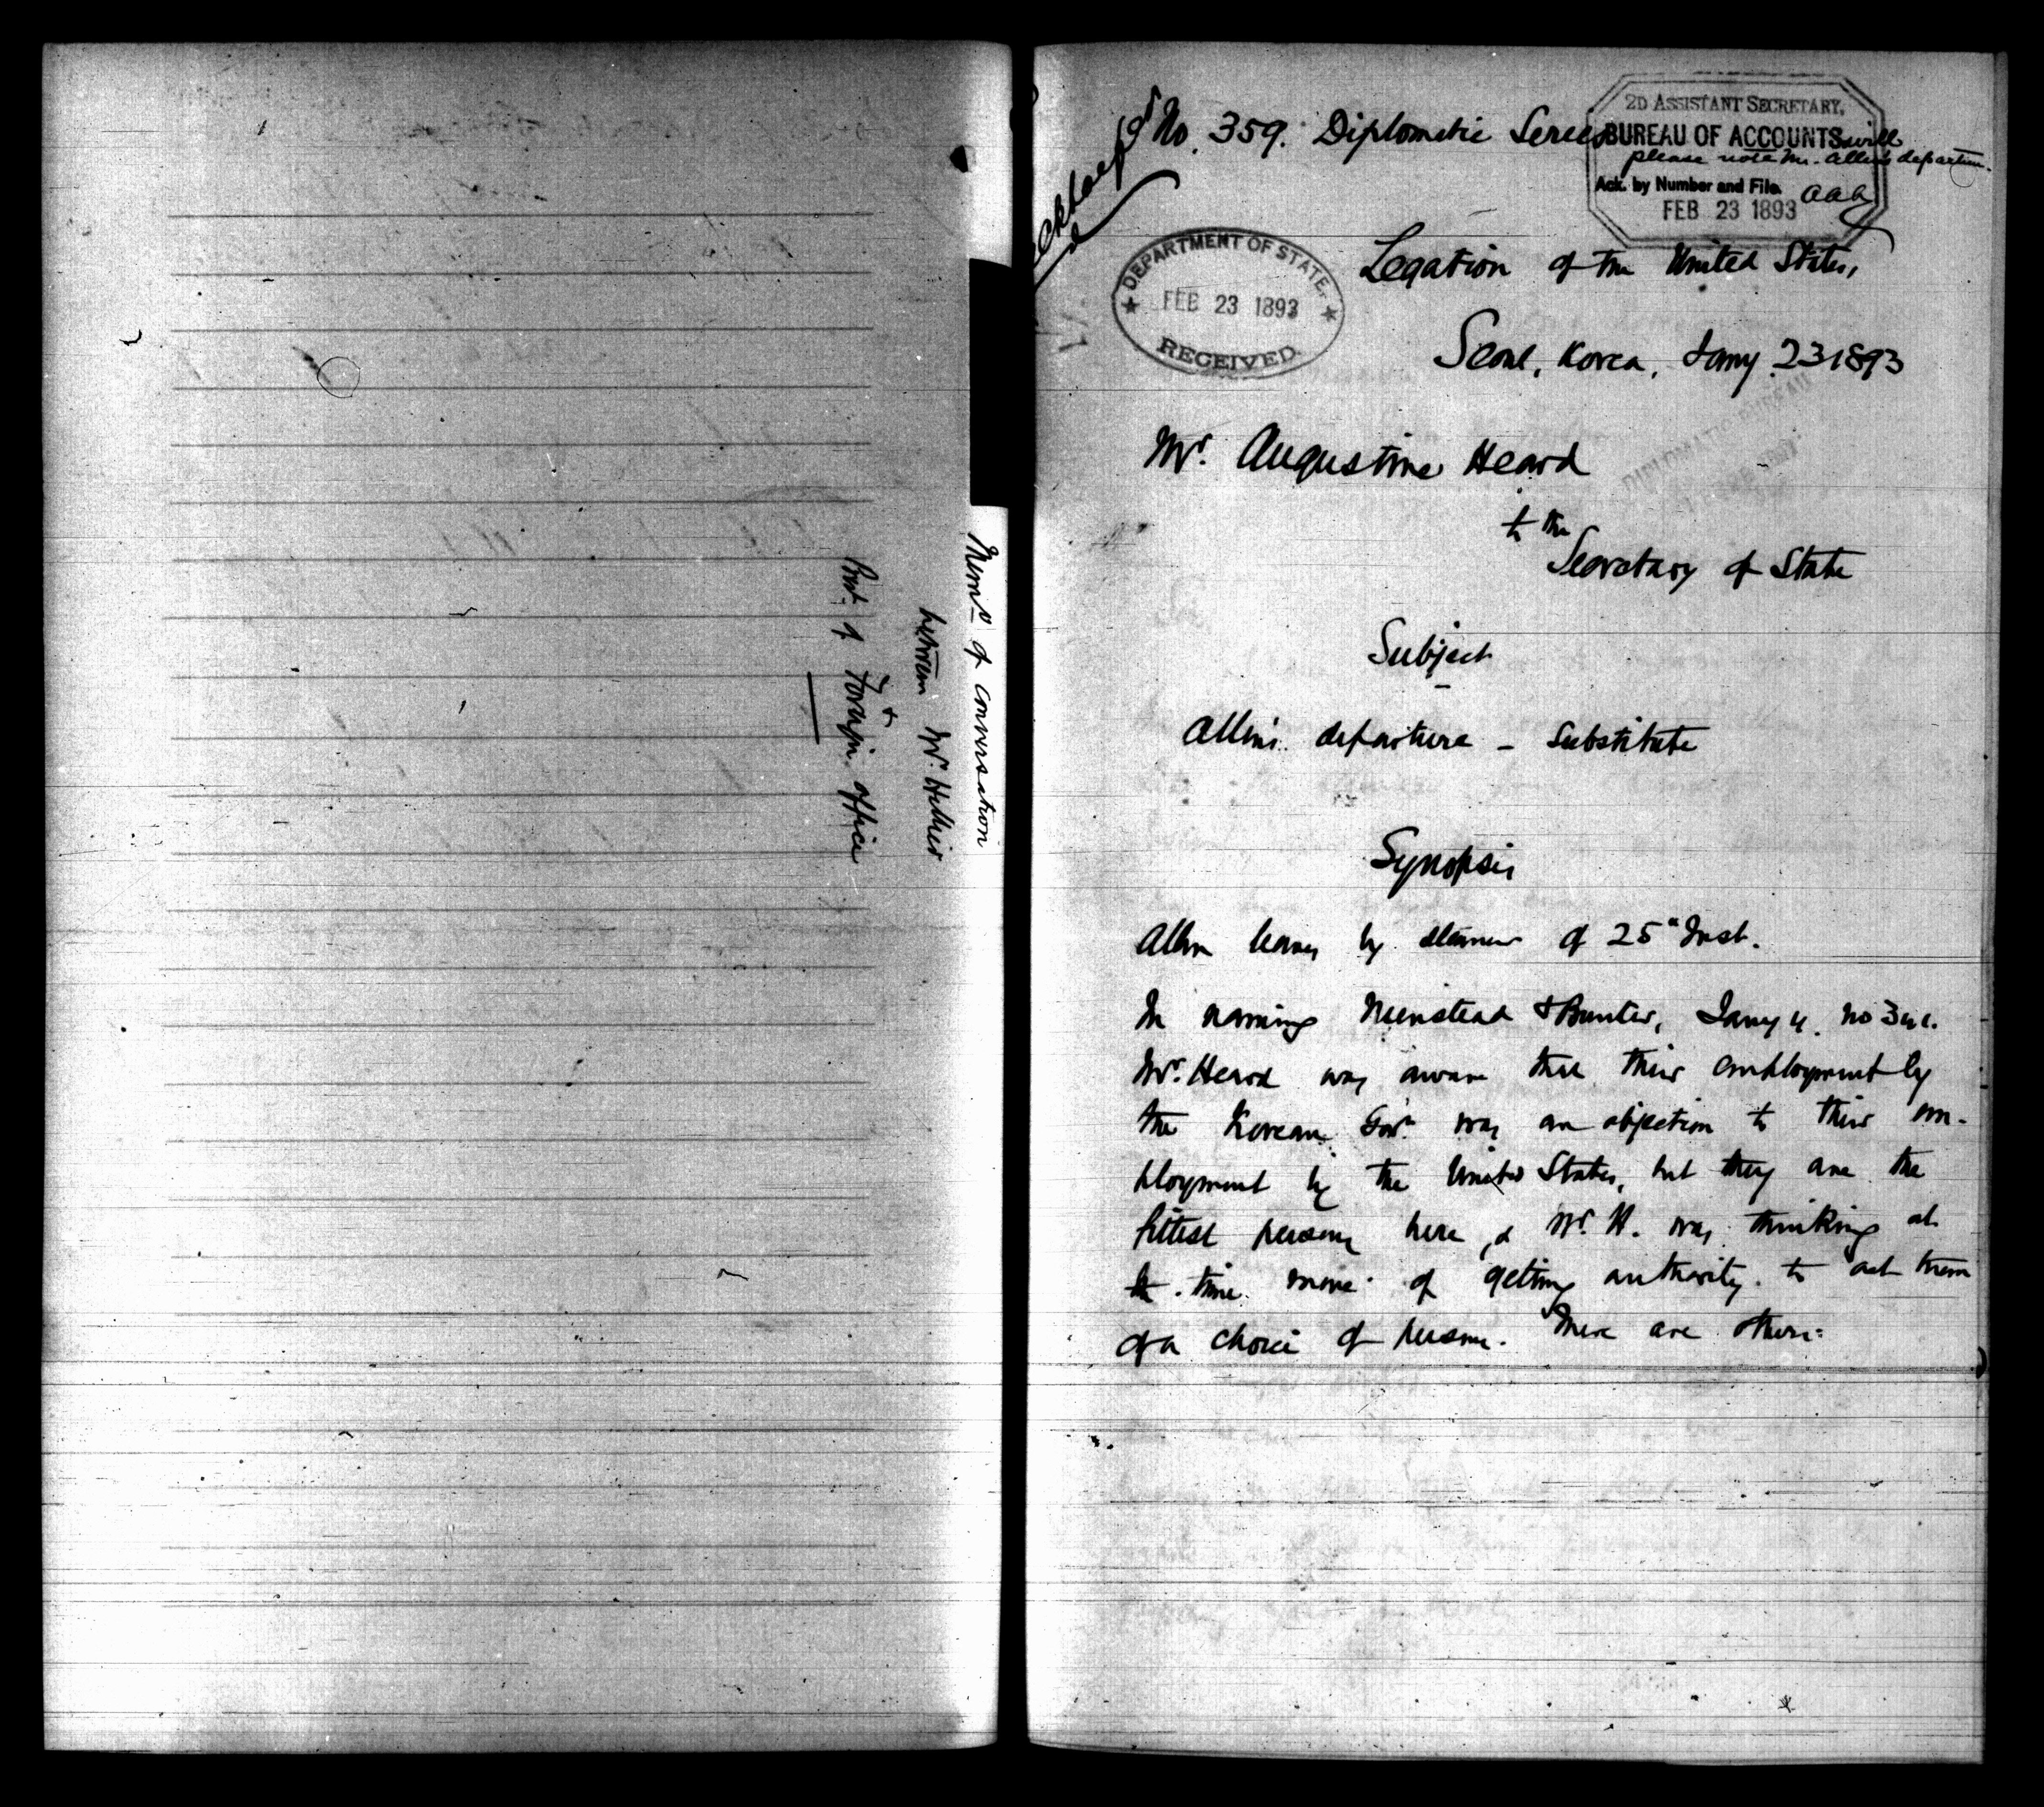 Memo of conversation
between Mr. Hillier
&
Prest. of Foreign Office
No. 359. Diplomatic Series
2D ASSISTANT SECRETARY,
BUREAU OF ACCOUNTS will
please note Mr. Allen's departure.
Ack. by Number and File.
FEB 23 1893 aaa
DEPARTMENT OF STATE,
FEB 23 1893
RECEIVED.
Legation of the United States,
Seoul, Korea, Jany. 23 1893
DIPLOMATIC BUREAU
Mr. Augustine Heard
to the
Secretary of State
Subject
Allen's departure – Substitute
Synopsis
Allen leaves by steamer of 25th Inst.
In naming Nienstead & Bunker, Jany 4. No 3
Mr. Heard was aware that their employment by
the Korean Govt. was an objection to their em-
ployment by the United States, but they are the
fittest persons here, & Mr. H. was thinking at
the time more of getting authority to act than
of a choice of persons. There are others.